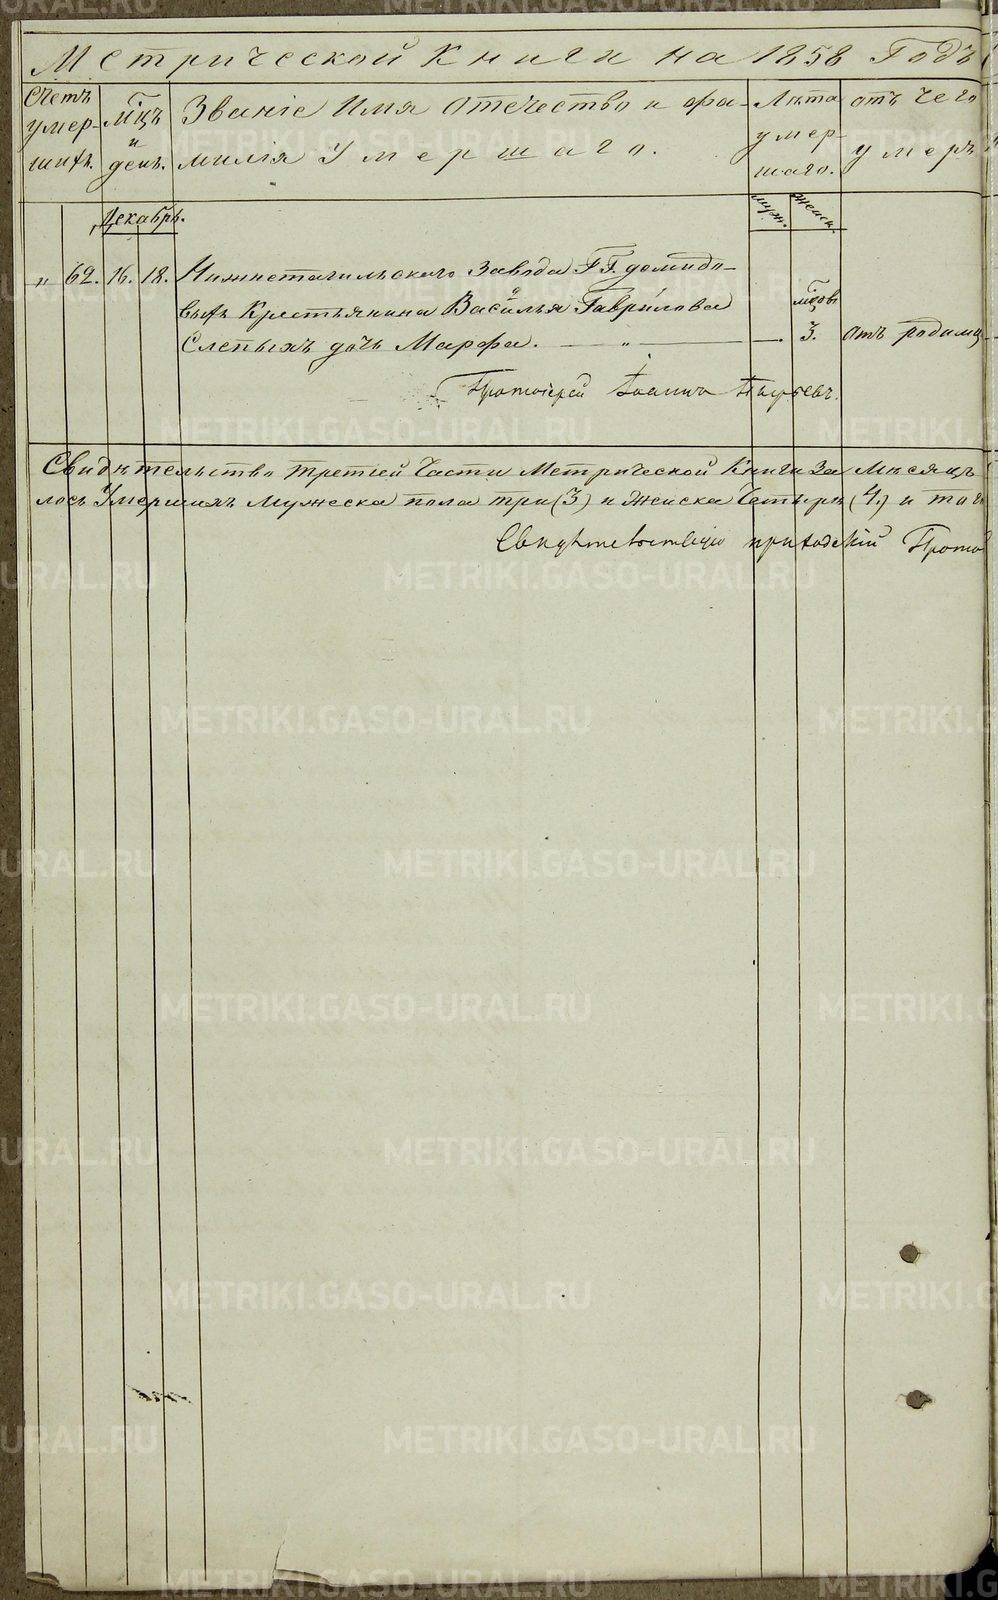 Метрической Книги на 1858 Годъ
Счетъ умер-шихъ.
Мцъ и день.
Званіе Имя Отечество и фа-
милія Умершаго.
Лѣта умер-шаго.
отъ чего умеръ
Декабрь.
муж.
женск.
" 62. 16. 18. Нижнетагильскаго Завода ГГ. Демидо-
выхъ Крестьянина Василья Гаврилова
мцовъ
Слепыхъ дочь Марфа. — " — — 3. отъ родимц
Протоіерей Іоаннъ
Свидѣтельство третіей Части Метрической Книги За Мѣсяцъ
лось Умершихъ Мужеска пола три (3) и Женска Четыре (4.) и того
Свидѣтельствую приходскій Прото
METRIKI.GASO-URAL.RU